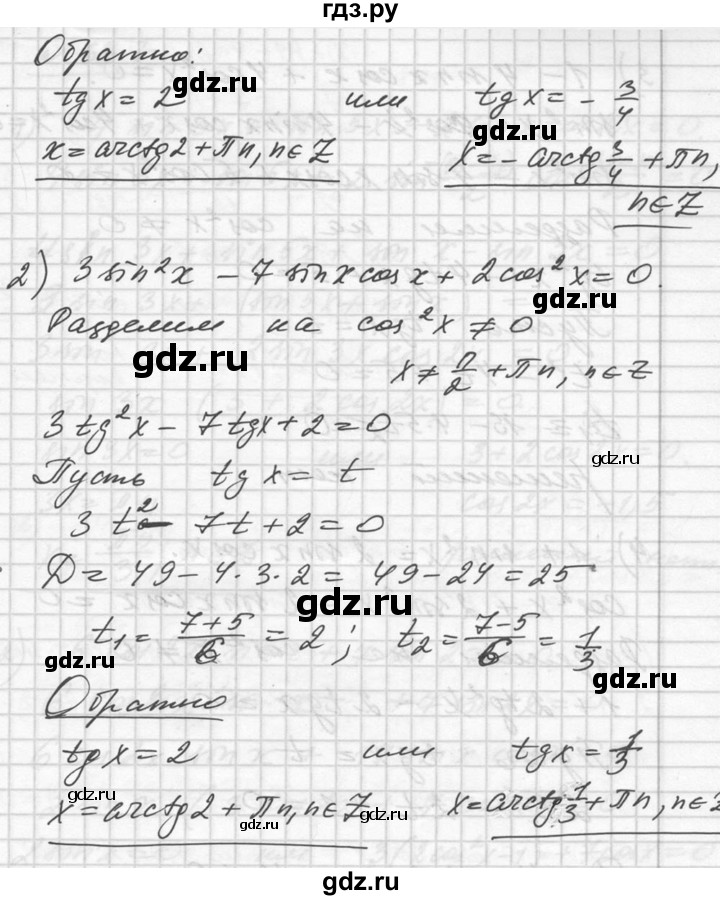 гдз.ру
Обратно:
gdz.ru
tg x = 2 или tg x = - 3/4
gdz.ru
x = arctg 2 + πn, n∈Z x = - arctg 3/4 + πn,
n∈Z
2) 3 sin²x - 7 sin x cos x + 2 cos²x = 0.
gdz.ru
Разделим на cos²x ≠ 0
gdz.ru
x ≠ π/2 + πn, n∈Z
3 tg²x - 7 tg x + 2 = 0
gdz.ru
Пусть tg x = t
3 t² - 7t + 2 = 0
D = 49 - 4·3·2 = 49 - 24 = 25
gdz.ru
t₁ = (7+5)/6 = 2 ; t₂ = (7-5)/6 = 1/3
gdz.ru
Обратно
tg x = 2 или tg x = 1/3
gdz.ru
x = arctg 2 + πn, n∈Z x = arctg 1/3 + πn, n∈Z
gdz.ru gdz.ru
gdz.ru